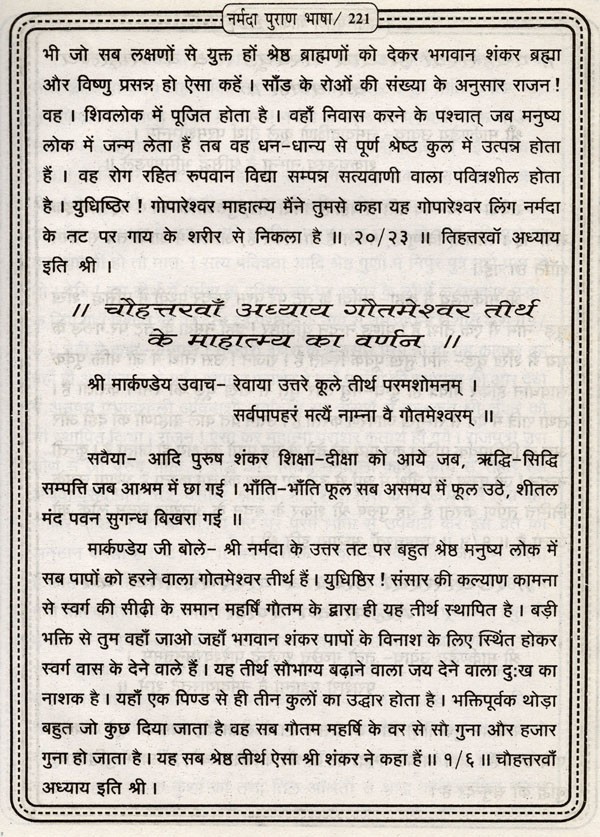 नर्मदा पुराण भाषा/ 221
भी जो सब लक्षणों से युक्त हों श्रेष्ठ ब्राह्मणों को देकर भगवान शंकर ब्रह्मा
और विष्णु प्रसन्न हो ऐसा कहें । साँड के रोओं की संख्या के अनुसार राजन !
वह । शिवलोक में पूजित होता है । वहाँ निवास करने के पश्चात् जब मनुष्य
लोक में जन्म लेता हैं तब वह धन-धान्य से पूर्ण श्रेष्ठ कुल में उत्पन्न होता
हैं । वह रोग रहित रुपवान विद्या सम्पन्न सत्यवाणी वाला पवित्रशील होता
है । युधिष्ठिर ! गोपारेश्वर माहात्म्य मैंने तुमसे कहा यह गोपारेश्वर लिंग नर्मदा
के तट पर गाय के शरीर से निकला है ॥ २०/२३ ॥ तिहत्तरवॉ अध्याय
इति श्री ।
॥ चौहत्तरवाँ अध्याय गौतमेश्वर तीर्थ
के माहात्म्य का वर्णन ॥
श्री मार्कण्डेय उवाच- रेवाया उत्तरे कूले तीर्थ परमशोमनम् ।
सर्वपापहरं मर्त्यै नाम्ना वै गौतमेश्वरम् ॥
सवैया- आदि पुरुष शंकर शिक्षा-दीक्षा को आये जब, ऋद्धि-सिद्धि
सम्पत्ति जब आश्रम में छा गई । भाँति-भाँति फूल सब असमय में फूल उठे, शीतल
मंद पवन सुगन्ध बिखरा गई ॥
मार्कण्डेय जी बोले- श्री नर्मदा के उत्तर तट पर बहुत श्रेष्ठ मनुष्य लोक में
सब पापों को हरने वाला गोतमेश्वर तीर्थ हैं । युधिष्ठिर ! संसार की कल्याण कामना
से स्वर्ग की सीढ़ी के समान महर्षि गौतम के द्वारा ही यह तीर्थ स्थापित है । बड़ी
भक्ति से तुम वहाँ जाओ जहाँ भगवान शंकर पापों के विनाश के लिए स्थिंत होकर
स्वर्ग वास के देने वाले हैं । यह तीर्थ सौभाग्य बढ़ाने वाला जय देने वाला दुःख का
नाशक है । यहाँ एक पिण्ड से ही तीन कुलों का उद्धार होता है । भक्तिपूर्वक थोड़ा
बहुत जो कुछ दिया जाता है वह सब गौतम महर्षि के वर से सौ गुना और हजार
गुना हो जाता है । यह सब श्रेष्ठ तीर्थ ऐसा श्री शंकर ने कहा हैं ॥ १/६ ॥ चौहत्तरवाँ
अध्याय इति श्री ।